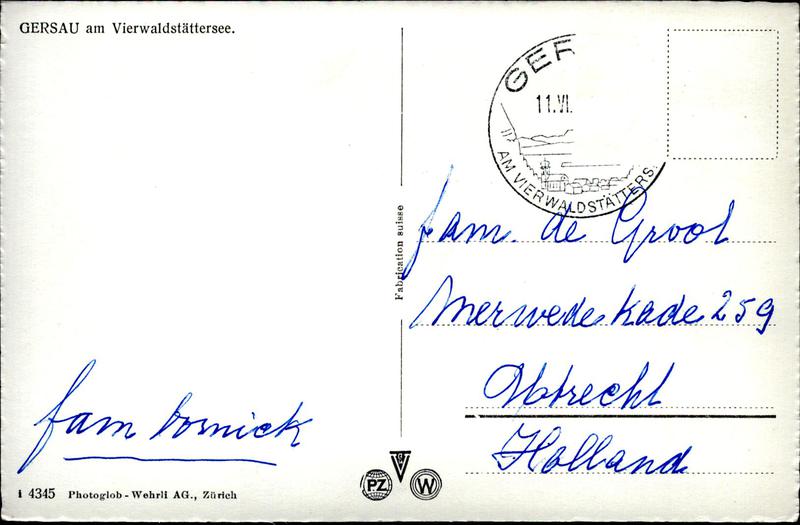 GERSAU am Vierwaldstättersee.
GER
11.VI.
AM VIERWALDSTÄTTERS
Fabrication suisse
fam. de Groot
Merwedekade 259
Utrecht
Holland
fam
i 4345 Photoglob-Wehrli AG., Zürich
PZ
W